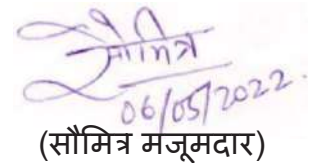 सौमित्र
06/05/2022.
(सौमित्र मजूमदार)